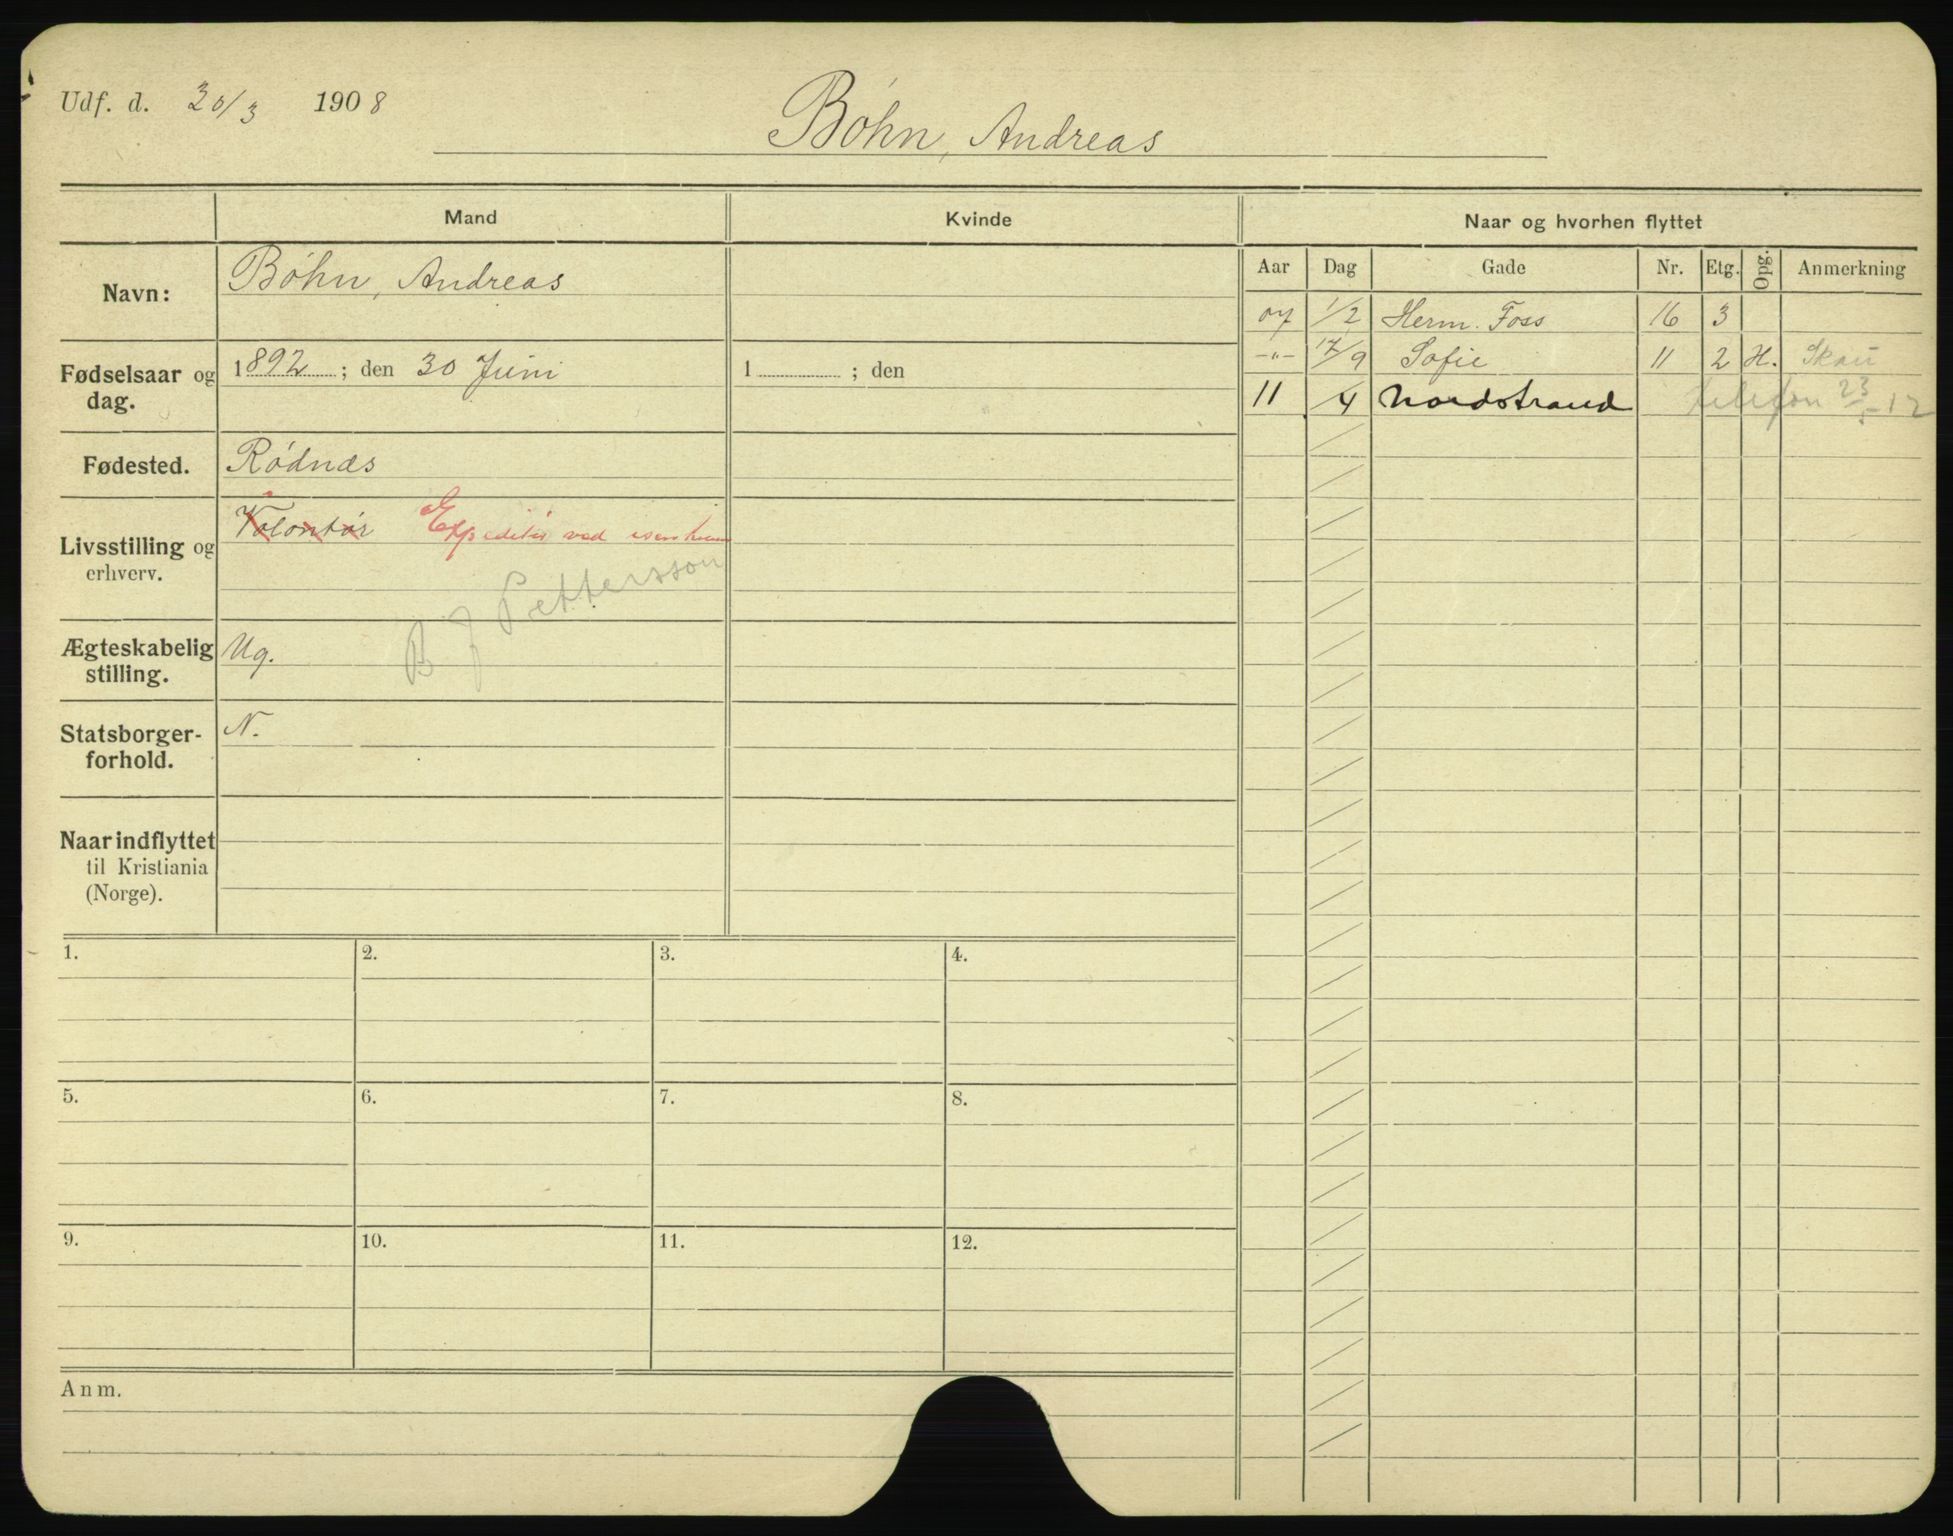 Udf. d. 30/3 1908
Bøhn, Andreas
Mand
Kvinde
Naar og hvorhen flyttet
Aar Dag Gade Nr. Etg. Opg. Anmerkning
Navn: Bøhn, Andreas
07 1/2 Herm. Foss 16 3
-"- 17/9 Sofie 11 2 H. Skau
11 /4 Nordstrand telefon 23/5-12
Fødselsaar og dag. 1892; den 30 Juni
1 ; den
Fødested. Rødnæs
Livsstilling og erhverv. Volontør Expeditør ved
B J Pettersson
Ægteskabelig stilling. Ug.
Statsborger-forhold. N.
Naar indflyttet til Kristiania (Norge).
1. 2. 3. 4.
5. 6. 7. 8.
9. 10. 11. 12.
Anm.